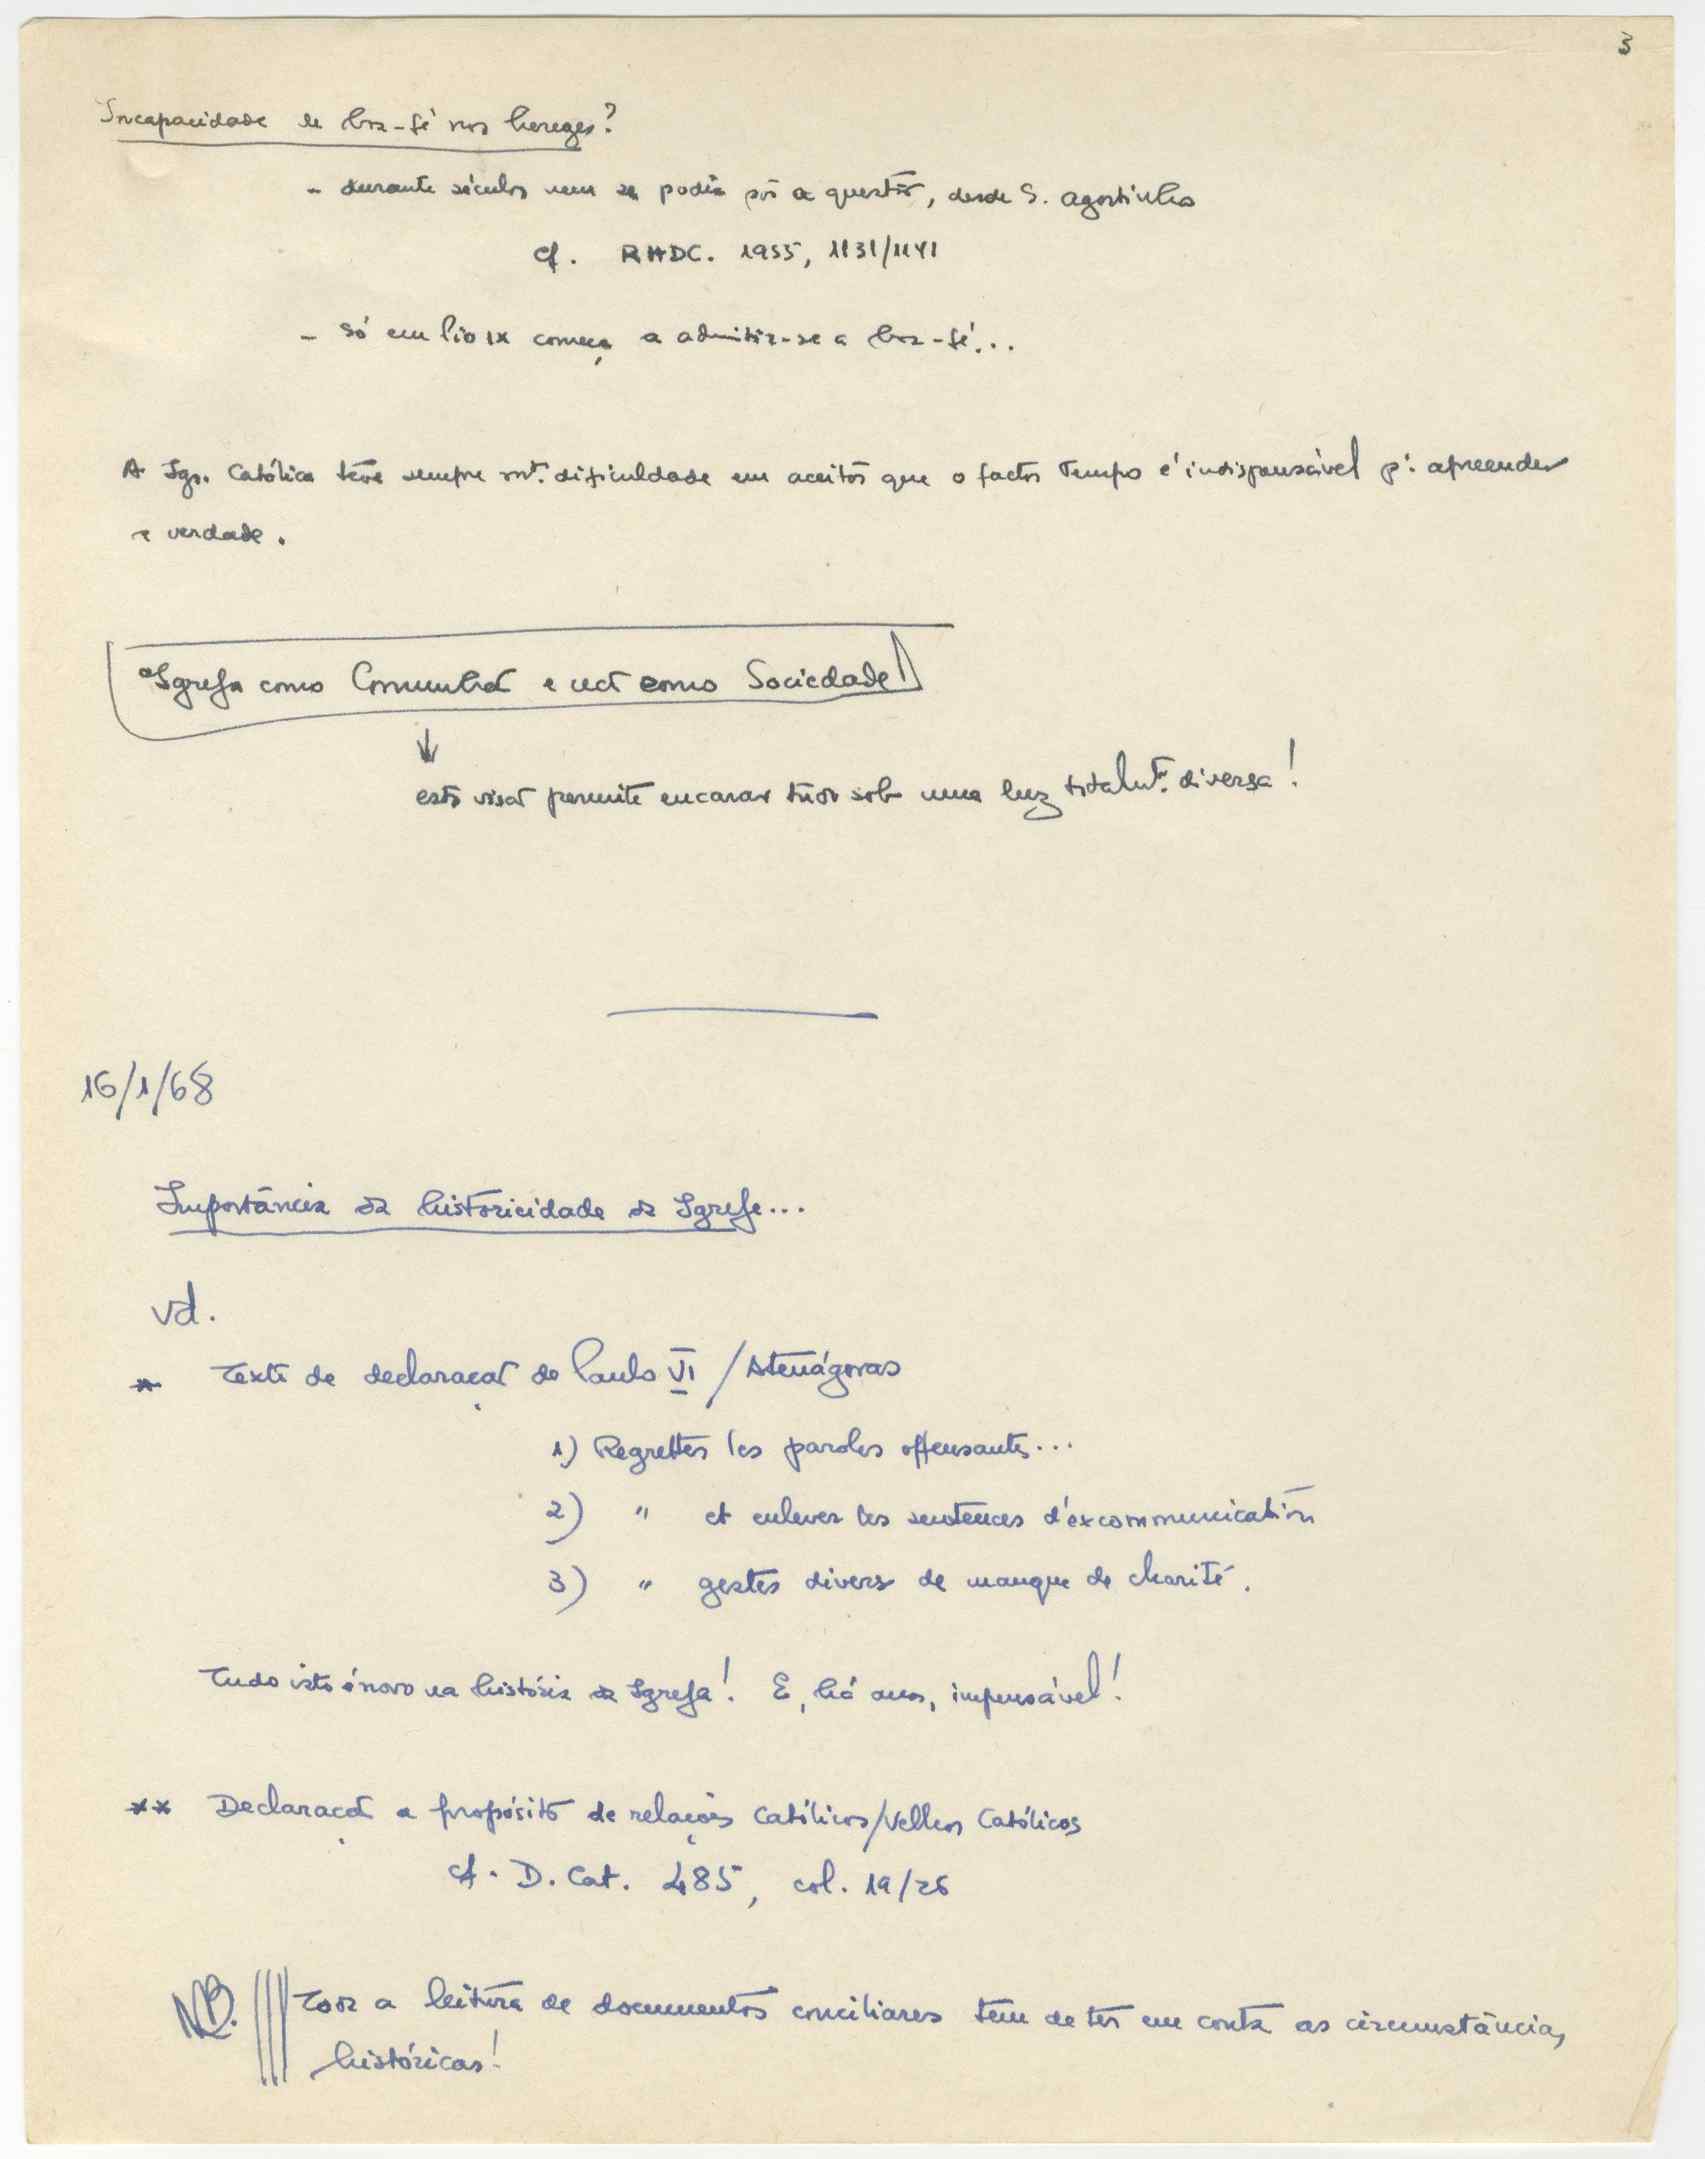 3
Incapacidade de boa-fé nos hereges?
- durante séculos nem se podia pôr a questão, desde S. Agostinho
cf. RHDC. 1955, 1131/1141
- Só em Pio IX começa a admitir-se a boa-fé...
A Igr. Católica teve sempre mt. dificuldade em aceitar que o factor Tempo é indispensável p: apreender
a verdade.
Igreja como Comunhão e não como Sociedade
esta visão permite encarar tudo sob uma luz totalmte. diversa!
16/1/68
Importância da historicidade da Igreja...
vd.
* Texto de declaração de Paulo VI / Atenágoras
1) Regretter les paroles offensantes...
2) " et enlever les sentences d'excommunication
3) " gestes divers de manque de charité.
Tudo isto é novo na história da Igreja! E, há anos, impensável!
** Declaração a propósito de relações Católicos/Velhos Católicos
cf. D. Cat. 485, col. 19/26
NB. Toda a leitura de documentos conciliares tem de ter em conta as circunstâncias
históricas!